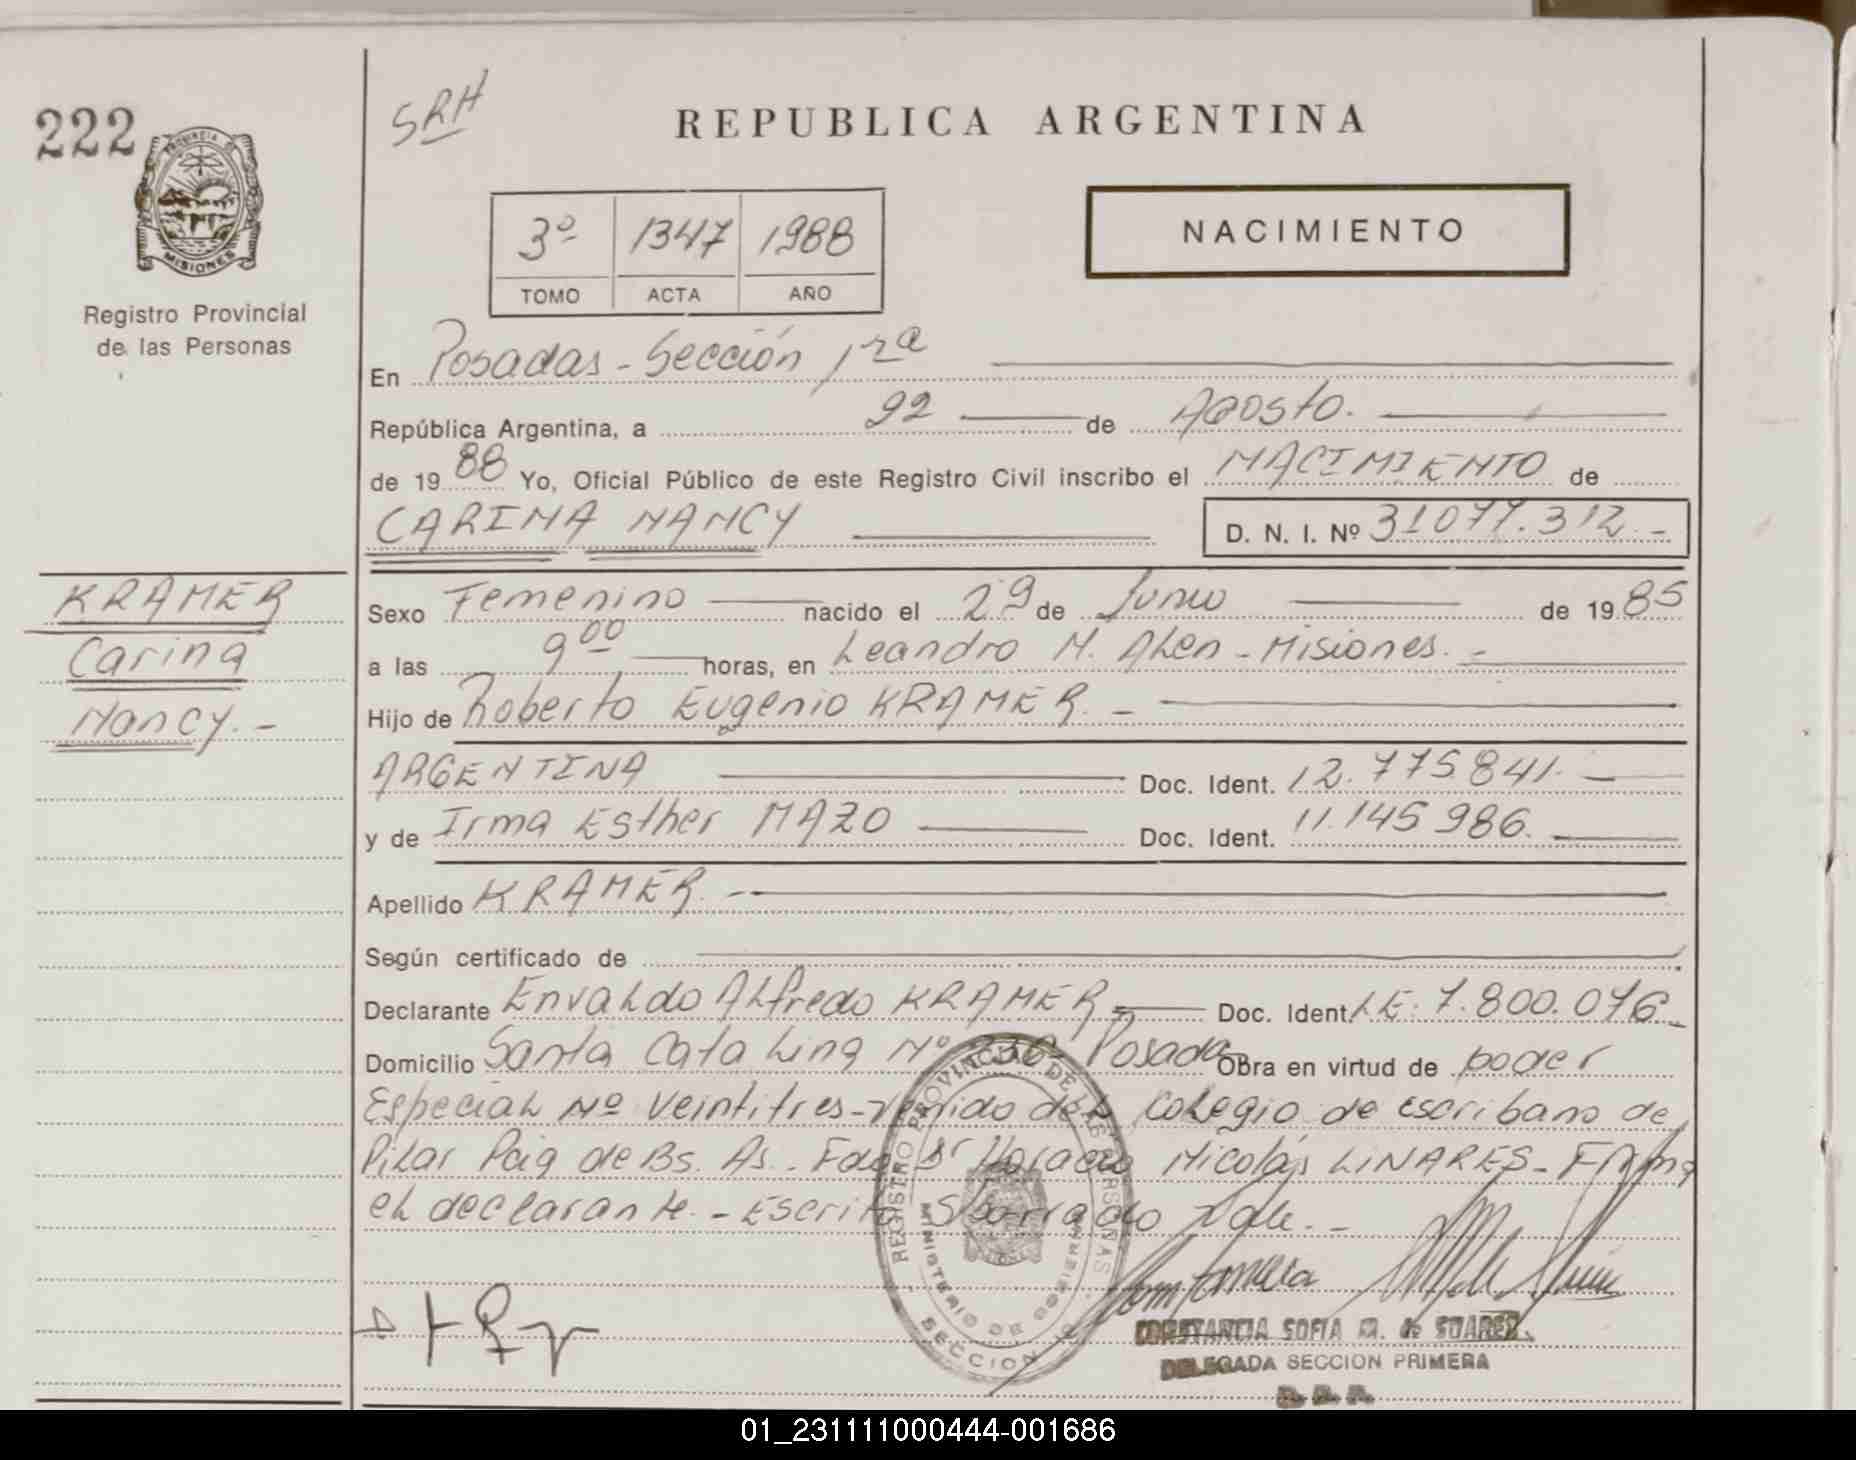 222
SRH
REPUBLICA ARGENTINA
PROVINCIA DE
MISIONES
Registro Provincial
de las Personas
3º 1347 1988
TOMO ACTA AÑO
NACIMIENTO
En Posadas - Sección 1ra
República Argentina, a 22 de Agosto.
de 1988 Yo, Oficial Público de este Registro Civil inscribo el NACIMIENTO de
CARINA NANCY D. N. I. Nº 31077.312.-
KRAMER
Carina
Nancy.-
Sexo Femenino nacido el 29 de Junio de 1985
a las 9 00 horas, en Leandro N. Alen - Misiones. -
Hijo de Roberto Eugenio KRAMER. -
ARGENTINA Doc. Ident. 12.775.841. -
y de Irma Esther MAZO Doc. Ident. 11.145 986.
Apellido KRAMER. -
Según certificado de
Declarante Envaldo Alfredo KRAMER Doc. Ident. LE. 7.800.076 -
Domicilio Santa Catalina Nº Posadas Obra en virtud de poder
Especial Nº veintitres - venido del Colegio de escribano de
Pilar de Bs. As. - Fdo Dr Horacio Nicolás LINARES - Firma
el declarante. - Escrito S/borrado Vale. -
REGISTRO PROVINCIAL DE LAS PERSONAS
MINISTERIO DE GOBIERNO
SECCION
CONSTANCIA SOFIA M. de SUAREZ
DELEGADA SECCION PRIMERA
01_231111000444-001686